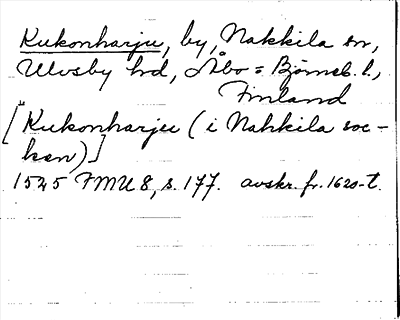 Kukonharju, by, Nakkila sn,
Ulvsby hd, Åbo = Björneb. l.,
Finland
["Kukonharju (i Nakkila soc-
ken)]
1525 FMU 8, s. 177. avskr. fr. 1620-t.